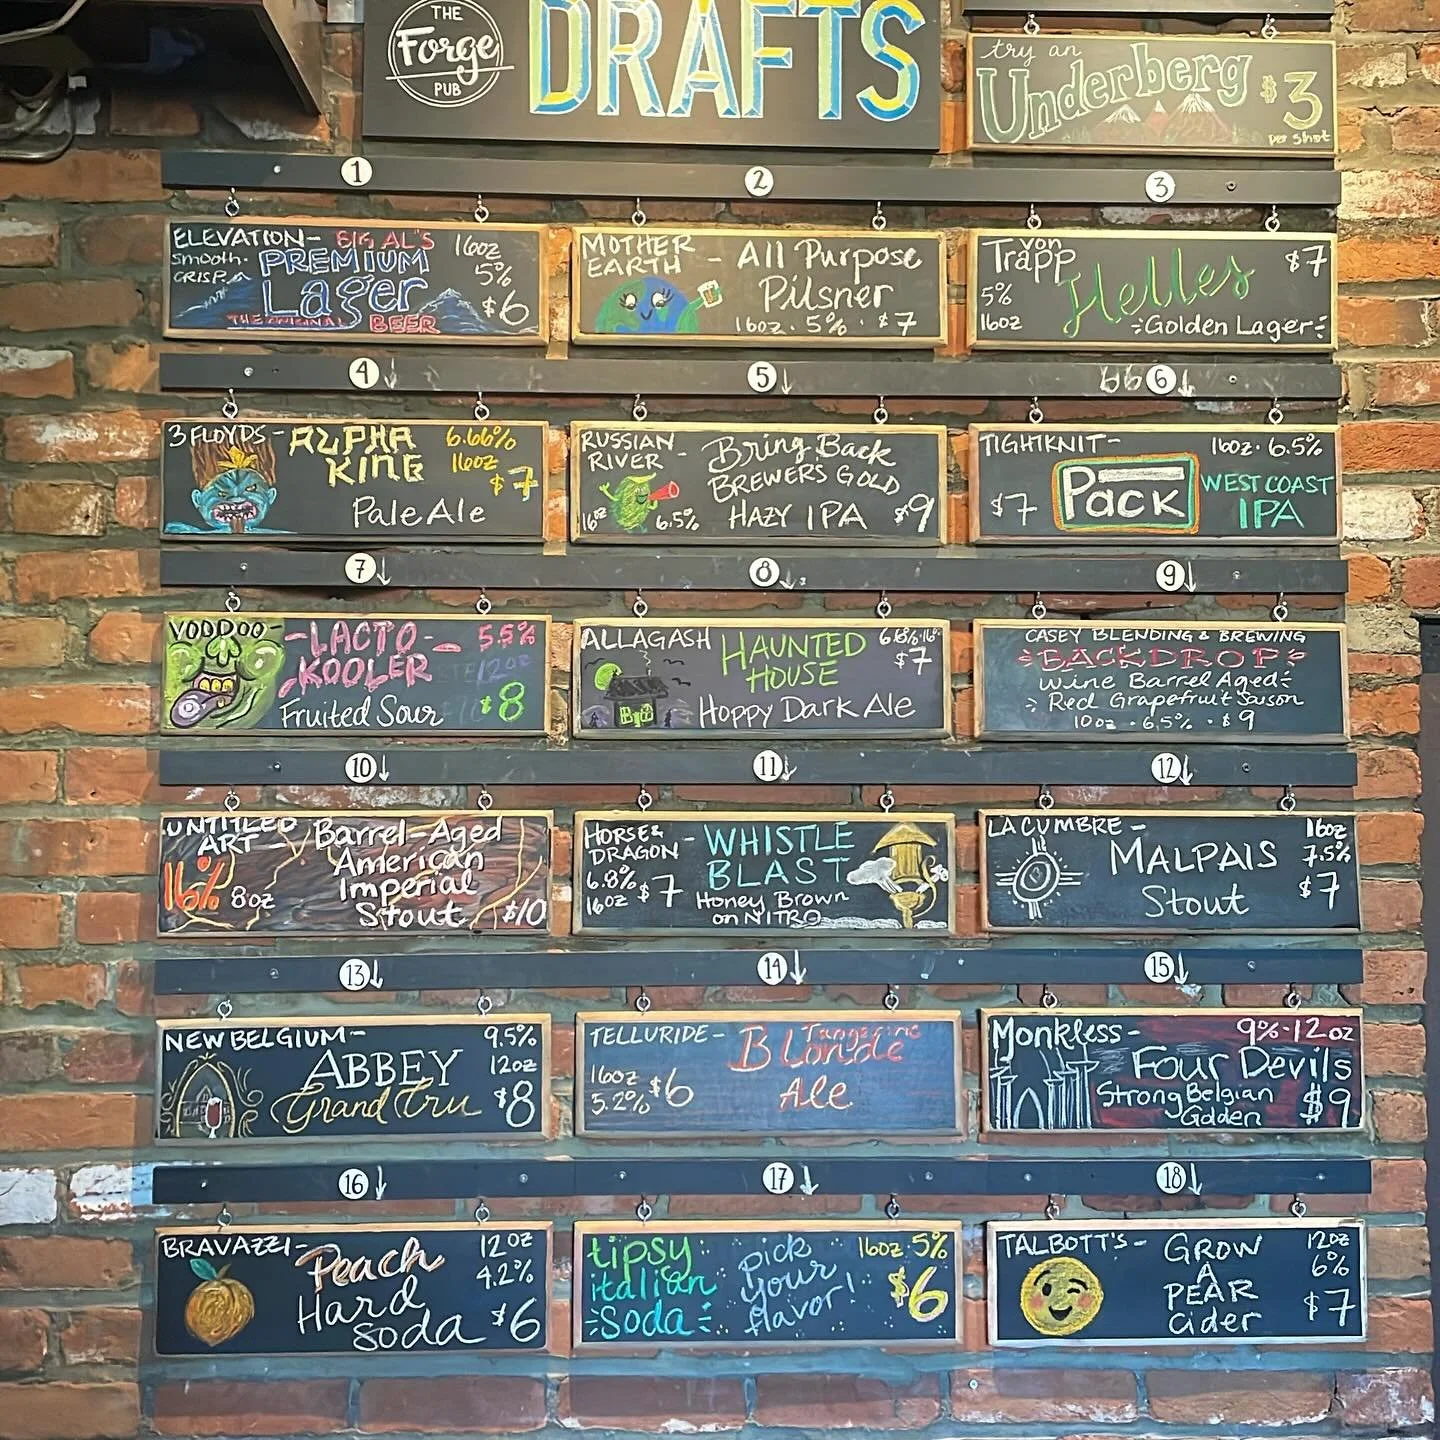 THE
Forge
PUB
DRAFTS
try an
Underberg
$3
per shot
1
2
3
ELEVATION- BIG AL'S 16oz
smooth.
CRISP.
PREMIUM
5%
Lager
$6
THE ORIGINAL BEER
MOTHER
EARTH - All Purpose
Pilsner
16oz. 5% . $7
von
Trapp
$7
Helles
5%
16oz
Golden Lager
4
5
6
3 FLOYDS - ALPHA 6.66%
KING 16oz
$7
Pale Ale
RUSSIAN
RIVER - Bring Back
BREWERS GOLD
16oz 6.5% HAZY IPA $9
TIGHTKNIT- 16oz. 6.5%
$7 Pack WEST COAST
IPA
7
8
9
VOODOO- -LACTO- 5.5%
KOOLER 12oz
Fruited Sour $8
ALLAGASH HAUNTED 6.6% 16
HOUSE $7
Hoppy Dark Ale
CASEY BLENDING & BREWING
BACKDROP
Wine Barrel Aged
Red Grapefruit Saison
10oz . 6.5% . $9
10
11
12
UNTITLED
ART - Barrel-Aged
American
16% 8oz Imperial
Stout $10
HORSE &
DRAGON - WHISTLE
6.8% $7 BLAST
16oz Honey Brown
on NITRO
LA CUMBRE - 16oz
MALPAIS 7.5%
Stout $7
13
14
15
NEW BELGIUM- 9.5%
ABBEY 12oz
Grand Cru $8
TELLURIDE - Tangerine
Blonde
16oz $6
5.2% Ale
Monkless- 9%.12oz
Four Devils
Strong Belgian $9
Golden
16
17
18
BRAVAZZI- Peach 12oz
4.2%
Hard
Soda $6
tipsy pick 16oz.5%
italian your $6
Soda flavor!
TALBOTT'S - GROW 12oz
A 6%
PEAR
Cider $7